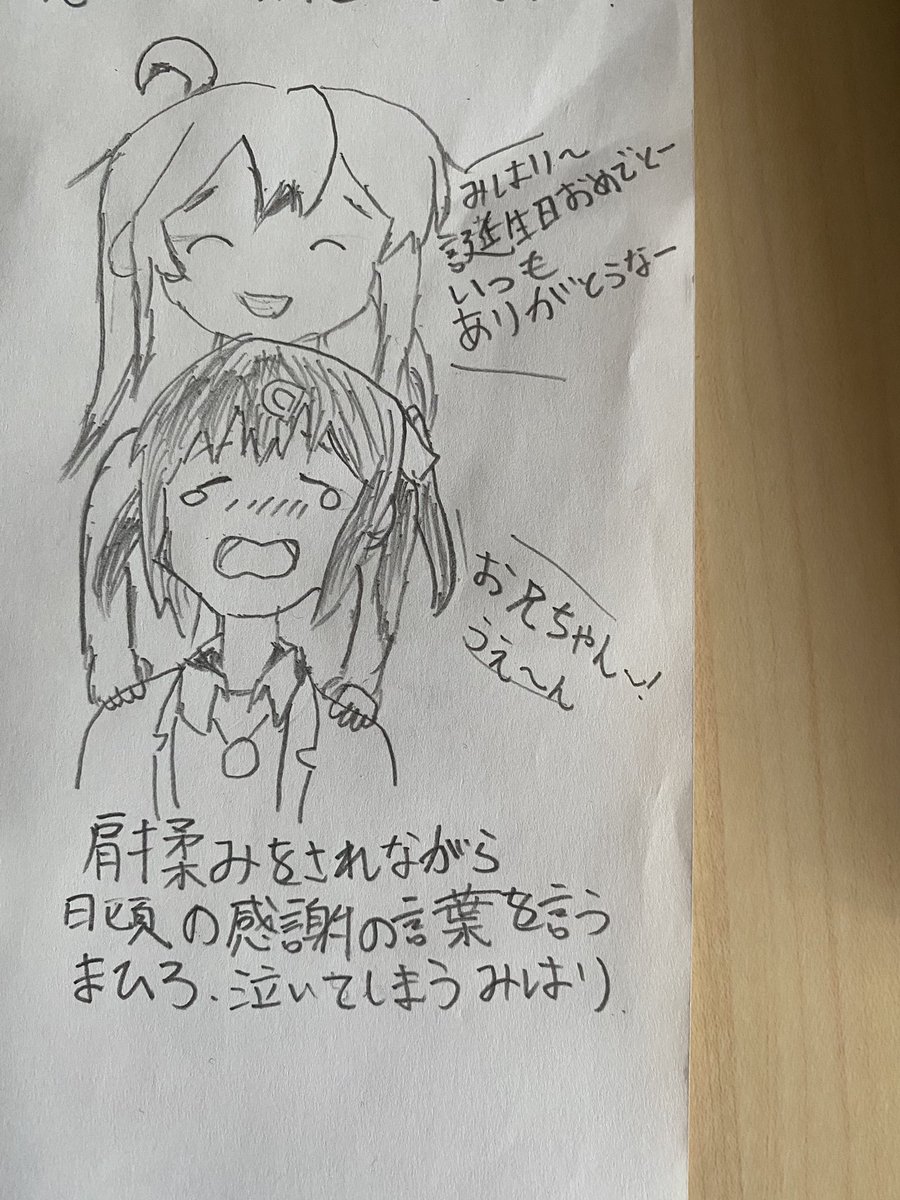 みはり〜
誕生日おめでとー
いつも
ありがとうなー
お兄ちゃん〜!
うえ〜ん
肩揉みをされながら
日頃の感謝の言葉を言う
まひろ、泣いてしまうみはり